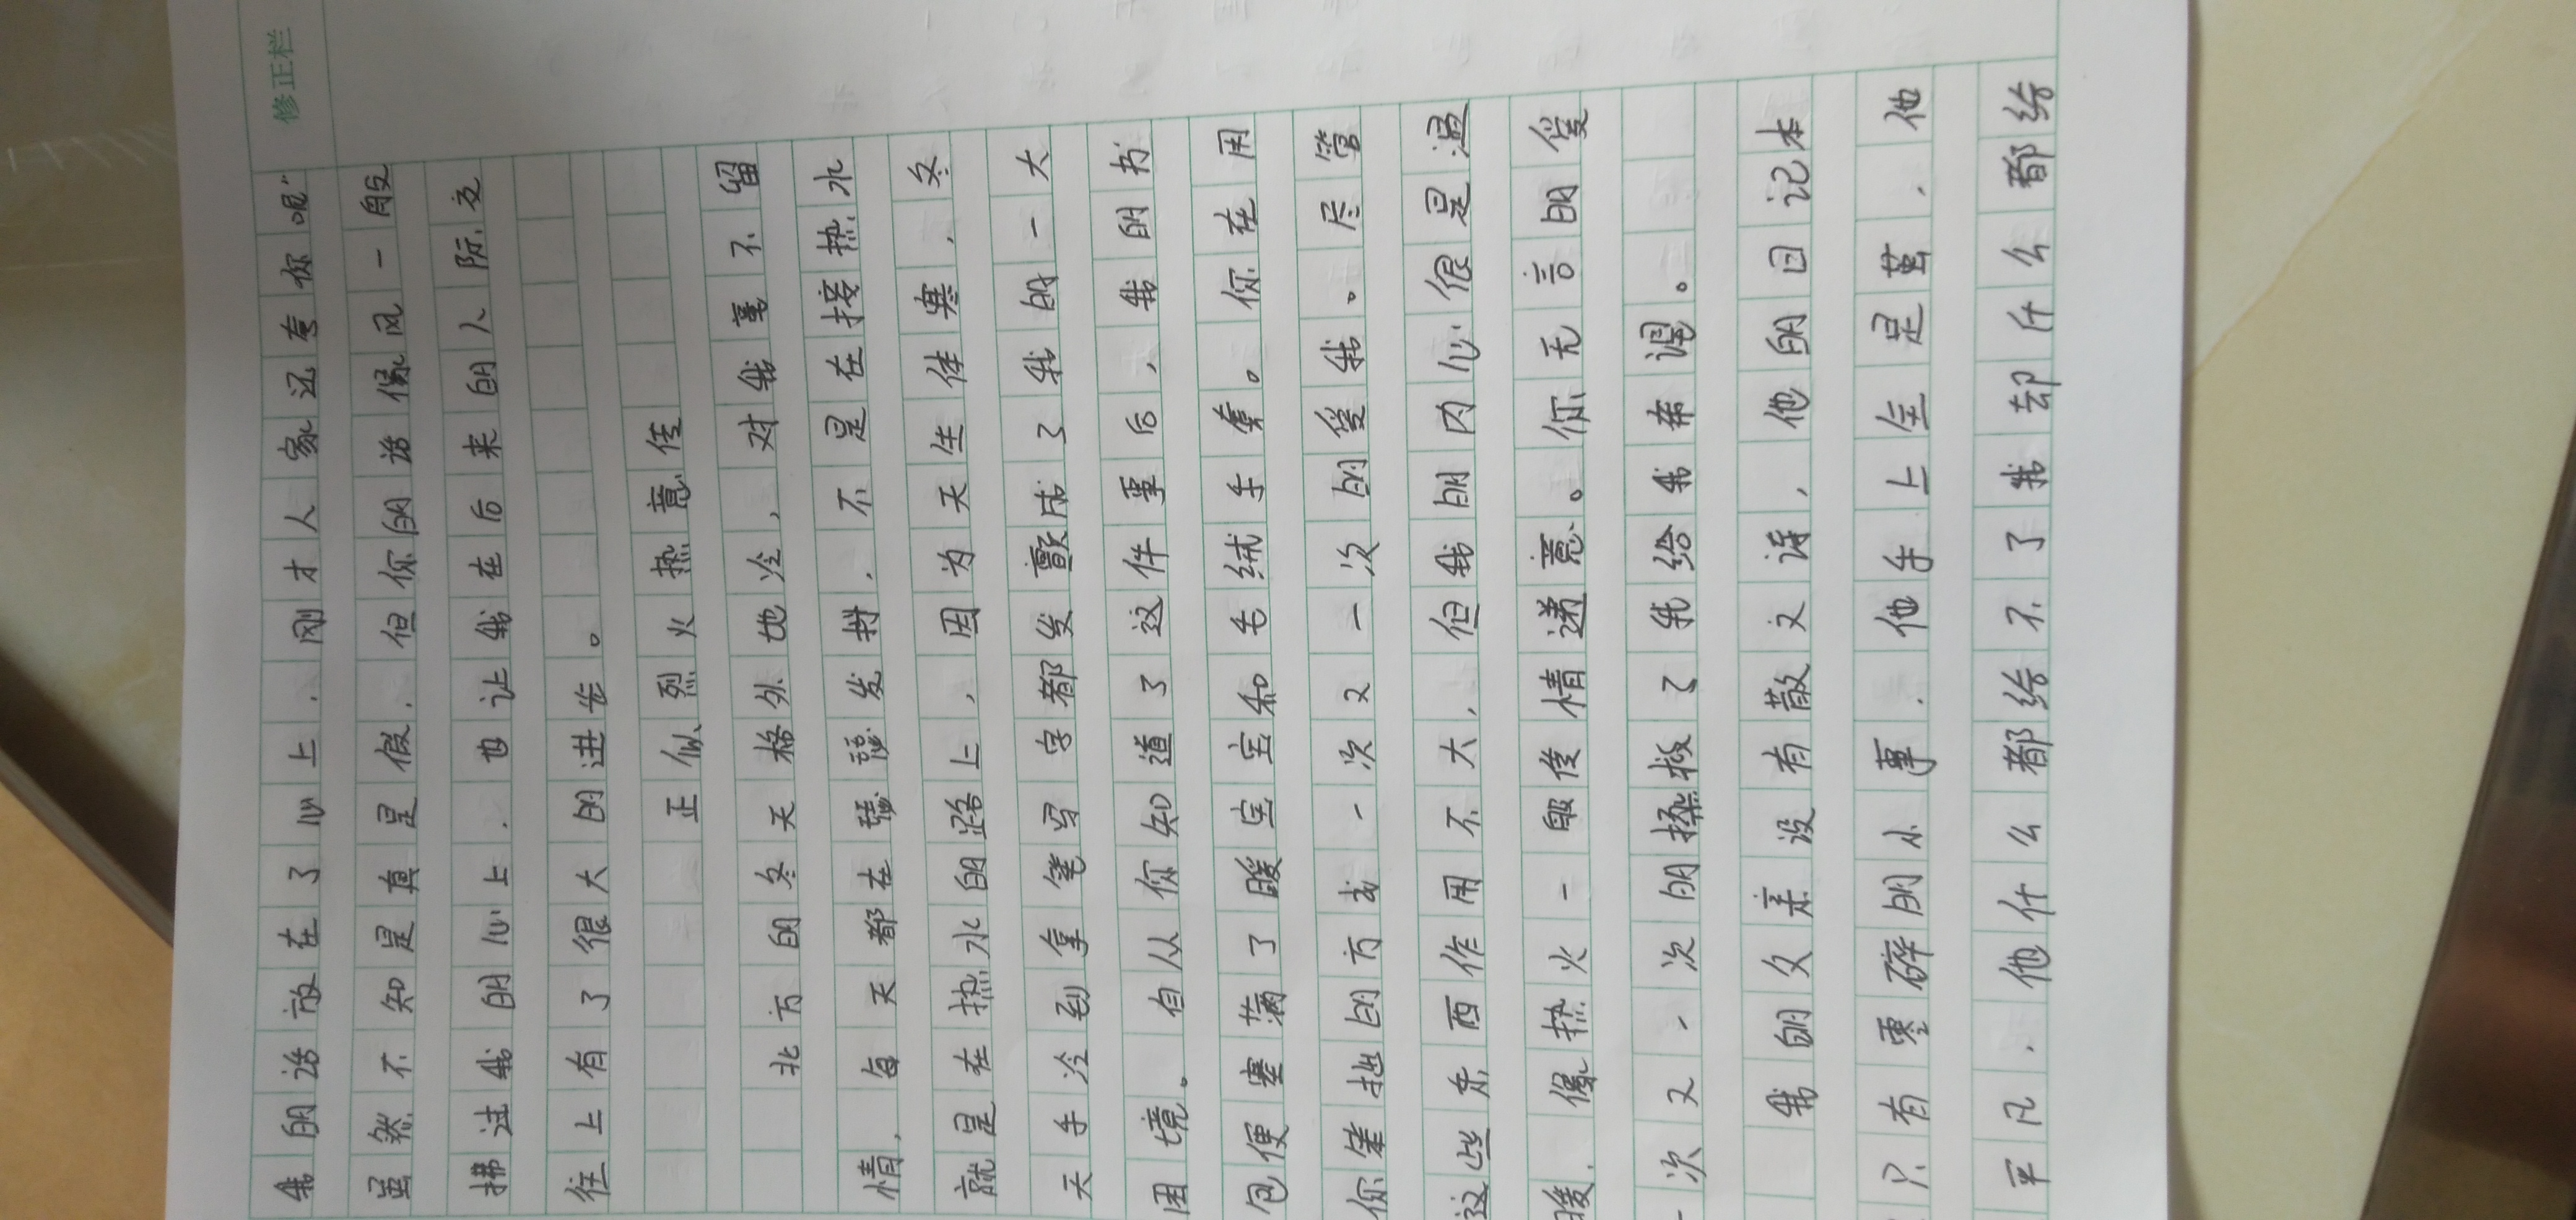 修正栏
我的话放在了心上，刚才人家还夸你呢"
虽然不知是真是假，但你的话像风一般
拂过我的心上，也让我在后来的人际交
往上有了很大的进步。
正似烈火热意传
北方的冬天格外地冷，对我毫不留
情，每天都在瑟瑟发抖，不是在接热水
就是在热水的路上，因为天生体寒，冬
天手冷到拿笔写字都发颤成了我的一大
困境。自从你知道了这件事后，我的书
包便塞满了暖宝宝和毛绒手套。你在用
你笨拙的方式一次又一次的爱我。尽管
这些东西作用不大，但我的内心很是温
暖，像热火一般传情递意。你无言的爱
一次又一次的拯救了我给我希望。
我的父亲没有散文诗，他的日记本
只有零碎的小事，他手上全是茧，他
平凡，他什么都给不了我却什么都给